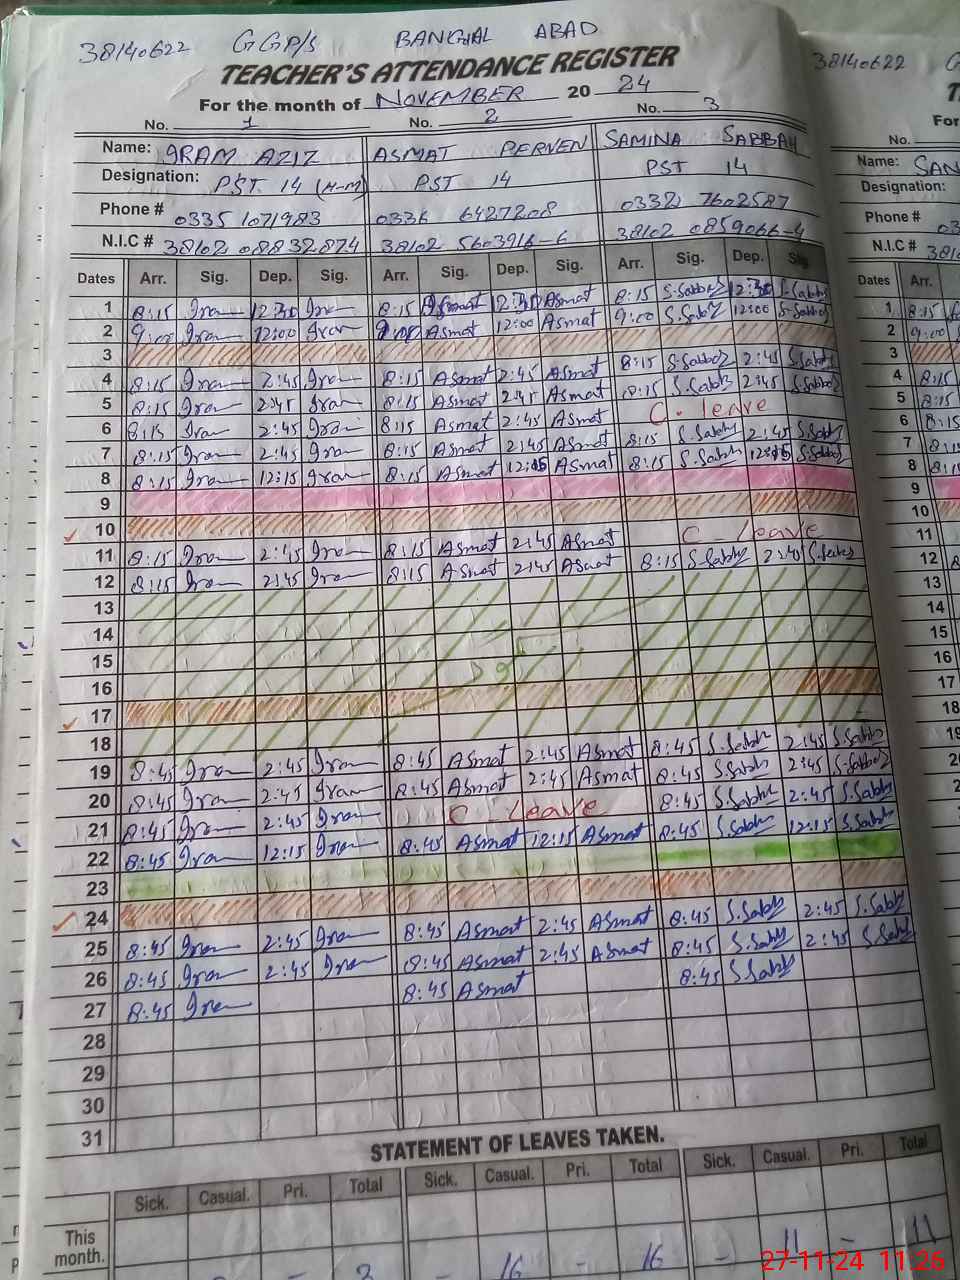 38140622 GGP/S BANGIAL ABAD
TEACHER'S ATTENDANCE REGISTER
For the month of NOVEMBER 20 24
No. 1 No. 2 No. 3
Name: IRAM AZIZ ASMAT PERVEN SAMINA SABBAH
Designation: PST 14 (H-M) PST 14 PST 14
Phone # 0335 1071983 0336 6427208 0332 7602587
N.I.C # 38102 08832874 38102 5603916-6 38102 0859066-4
Dates Arr. Sig. Dep. Sig. Arr. Sig. Dep. Sig. Arr. Sig. Dep. Sig.
1 8:15 Iram 12:30 Iram 8:15 Asmat 12:30 Asmat 8:15 S.Sabbah 12:30 S.Sabbah
2 9:00 Iram 12:00 Iram 9:00 Asmat 12:00 Asmat 9:00 S.Sabbah 12:00 S.Sabbah
3
4 8:15 Iram 2:45 Iram 8:15 Asmat 2:45 Asmat 8:15 S.Sabbah 2:45 S.Sabbah
5 8:15 Iram 2:45 Iram 8:15 Asmat 2:45 Asmat 8:15 S.Sabbah 2:45 S.Sabbah
6 8:15 Iram 2:45 Iram 8:15 Asmat 2:45 Asmat C. leave
7 8:15 Iram 2:45 Iram 8:15 Asmat 2:45 Asmat 8:15 S.Sabbah 2:45 S.Sabbah
8 8:15 Iram 12:15 Iram 8:15 Asmat 12:15 Asmat 8:15 S.Sabbah 12:15 S.Sabbah
9
10
11 8:15 Iram 2:45 Iram 8:15 Asmat 2:45 Asmat C - leave
12 8:15 Iram 2:45 Iram 8:15 Asmat 2:45 Asmat 8:15 S.Sabbah 2:45 S.Sabbah
13
14
15
16
17
18
19 8:45 Iram 2:45 Iram 8:45 Asmat 2:45 Asmat 8:45 S.Sabbah 2:45 S.Sabbah
20 8:45 Iram 2:45 Iram 8:45 Asmat 2:45 Asmat 8:45 S.Sabbah 2:45 S.Sabbah
21 8:45 Iram 2:45 Iram C - Leave 8:45 S.Sabbah 2:45 S.Sabbah
22 8:45 Iram 12:15 Iram 8:45 Asmat 12:15 Asmat 8:45 S.Sabbah 12:15 S.Sabbah
23
24
25 8:45 Iram 2:45 Iram 8:45 Asmat 2:45 Asmat 8:45 S.Sabbah 2:45 S.Sabbah
26 8:45 Iram 2:45 Iram 8:45 Asmat 2:45 Asmat 8:45 S.Sabbah 2:45 S.Sabbah
27 8:45 Iram 8:45 Asmat 8:45 S.Sabbah
28
29
30
31
STATEMENT OF LEAVES TAKEN.
Sick. Casual. Pri. Total Sick. Casual. Pri. Total Sick. Casual. Pri. Total
This month. - 3 16 - 16 - 11 - 11
38140622 G
For
No.
Name: SAN
Designation:
Phone # 03
N.I.C # 3810
Dates Arr.
1 8:15
2 9:00
3
4 8:15
5 8:15
6 8:15
7 8:15
8 8:15
9
10
11
12
13
14
15
16
17
18
27-11-24 11:26